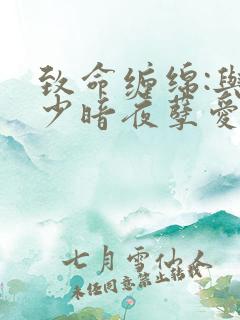 致命缠绵:与
少暗夜孽爱
七月雪仙人
未经同意禁止转载